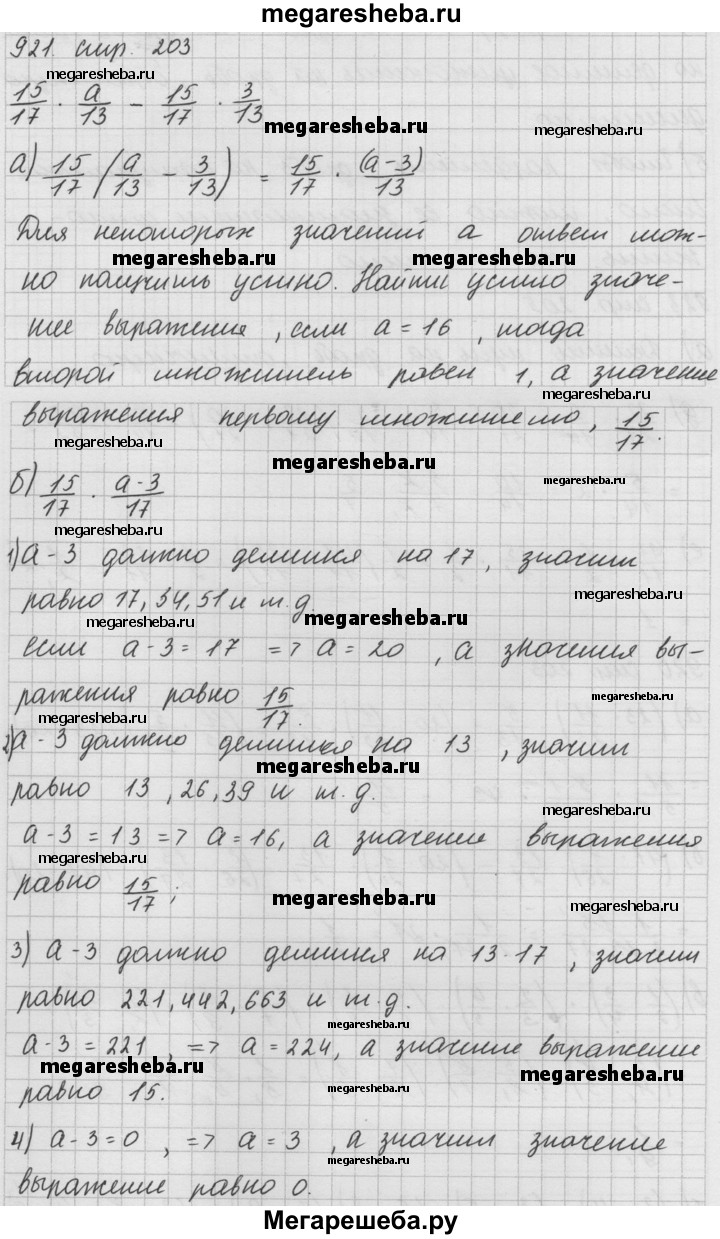 megaresheba.ru
921. стр. 203
megaresheba.ru
15/17 · a/13 − 15/17 · 3/13
megaresheba.ru
а) 15/17 (a/13 − 3/13) = 15/17 · (a−3)/13
megaresheba.ru
Для некоторых значений а ответ мож-
megaresheba.ru megaresheba.ru
но получить устно. Найти устно значе-
ние выражения, если а = 16, тогда
второй множитель равен 1, а значение
выражения первому множителю, 15/17.
megaresheba.ru
megaresheba.ru
б) 15/17 · a−3/17
megaresheba.ru
megaresheba.ru
1) а−3 должно делится на 17, значит
равно 17, 34, 51 и т.д.
megaresheba.ru megaresheba.ru
если а−3 = 17 => а = 20, а значения вы-
ражения равно 15/17.
megaresheba.ru
megaresheba.ru
2) а−3 должно делится на 13, значит
megaresheba.ru
равно 13, 26, 39 и т.д.
megaresheba.ru
а−3 = 13 => а = 16, а значение выражения
megaresheba.ru
равно 15/17;
megaresheba.ru
megaresheba.ru
3) а−3 должно делится на 13·17, значит
равно 221, 442, 663 и т.д.
megaresheba.ru
а−3 = 221, => а = 224, а значение выражение
megaresheba.ru megaresheba.ru
равно 15.
4) а−3 = 0, => а = 3, а значит значение
megaresheba.ru
выражение равно 0.
Мегарешеба.ру